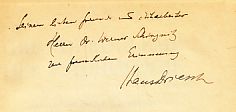 Seinem lieben Freunde und Mitarbeiter
Herrn Dr. Werner
zur freundlichen Erinnerung
Hans Driesch